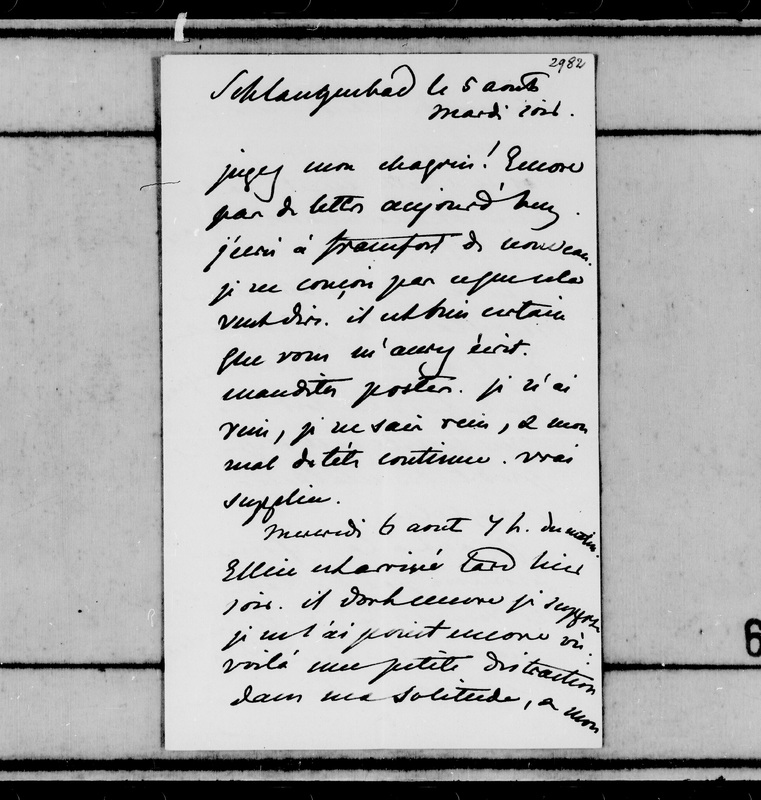 2982
Schlangenbad le 5 août
mardi soir.
jugez mon chagrin! Encore
pas de lettres aujourd'huy.
j'écris à francfort de nouveau.
je ne conçois pas ce que cela
veut dire. il est bien certain
que vous m'avez écrit.
maudites postes. je n'ai
rien, je ne sais rien, & mon
mal de tête continue. vrai
supplice.
Mercredi 6 aout 7 h. du matin.
Ellice est arrivé tard hier
soir. il dort encore je suppose
je ne l'ai point encore vu.
voilà une petite distraction
dans ma solitude, a mon
6